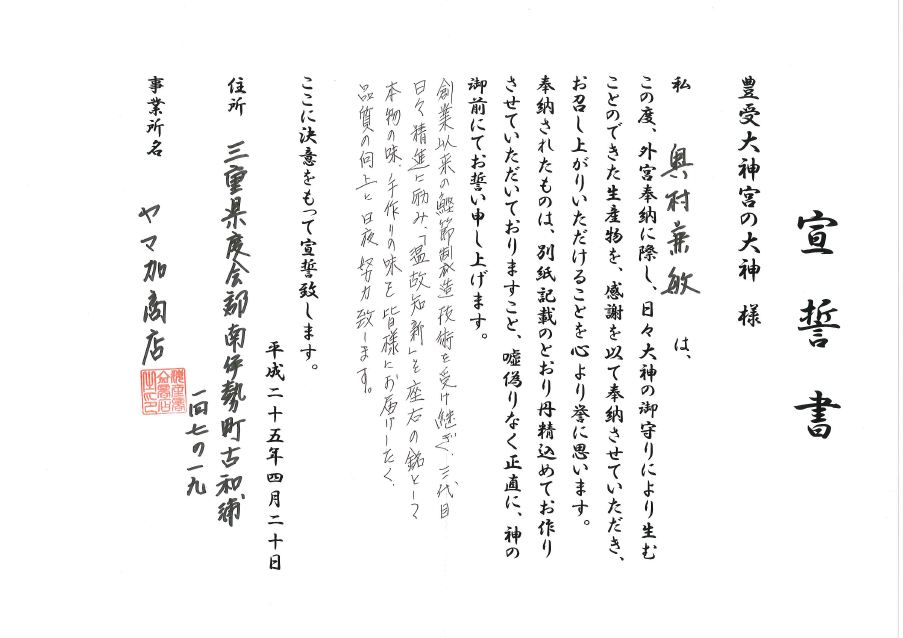 宣誓書
豊受大神宮の大神 様
私 奥村兼敏 は、
この度、外宮奉納に際し、日々大神の御守りにより生む
ことのできた生産物を、感謝を以て奉納させていただき、
お召し上がりいただけることを心より誉に思います。
奉納されたものは、別紙記載のとおり丹精込めてお作り
させていただいておりますこと、嘘偽りなく正直に、神の
御前にてお誓い申し上げます。
創業以来の鰹節製造技術を受け継ぎ、三代目
日々精進に励み、「温故知新」を座右の銘として
本物の味、手作りの味を皆様にお届けしたく、
品質の向上と日夜努力致します。
ここに決意をもって宣誓致します。
平成二十五年四月二十日
住所 三重県度会郡南伊勢町古和浦
一四七の一九
事業所名 ヤマ加商店